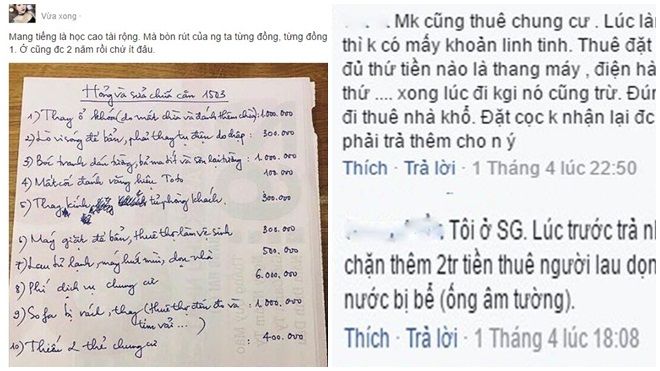 Vừa xong ·
Mang tiếng là học cao tài rộng. Mà bòn rút của ng ta từng đồng, từng đồng
1. Ở cũng đc 2 năm rồi chứ ít đâu.
Hỏng và sửa chữa căn 1503
1) Thay ổ khóa (do mất chìa và đánh thêm chìa): 1.000.000
2) Lò vi sóng để bẩn, phải thay tụ điện do chập: 300.000
3) Bóc tranh dán tường, bả ma tít và sơn lại tường: 1.000.000
4) Mất cái đánh văng hiệu Toto 100.000
5) Thay kính tủ phòng khách. 300.000
6) Máy giặt để bẩn, thuê thợ làm vệ sinh 300.000
7) Lau tủ lạnh, máy hút mùi, dọn nhà 500.000
8) Phí dịch vụ chung cư 6.000.000
9) Sofa bị rách, thay (thuê thợ đến đo và : 1.000.000
tìm vải ... )
10) Thiếu 2 thẻ chung cư - 400.000
. Mk cũng thuê chung cư . Lúc làn
thì k có mấy khoản linh tinh. Thuê đặt
đủ thứ tiền nào là thang máy , điện hà
thứ .... xong lúc đi kgi nó cũng trừ. Đún
đi thuê nhà khổ. Đặt cọc k nhận lại đc
phải trả thêm cho n ý
Thích · Trả lời · 1 Tháng 4 lúc 22:50
. Tôi ở SG. Lúc trước trả nh
chặn thêm 2tr tiền thuê người lau dọn
nước bị bể (ống âm tường).
Thích · Trả lời · 1 Tháng 4 lúc 18:08